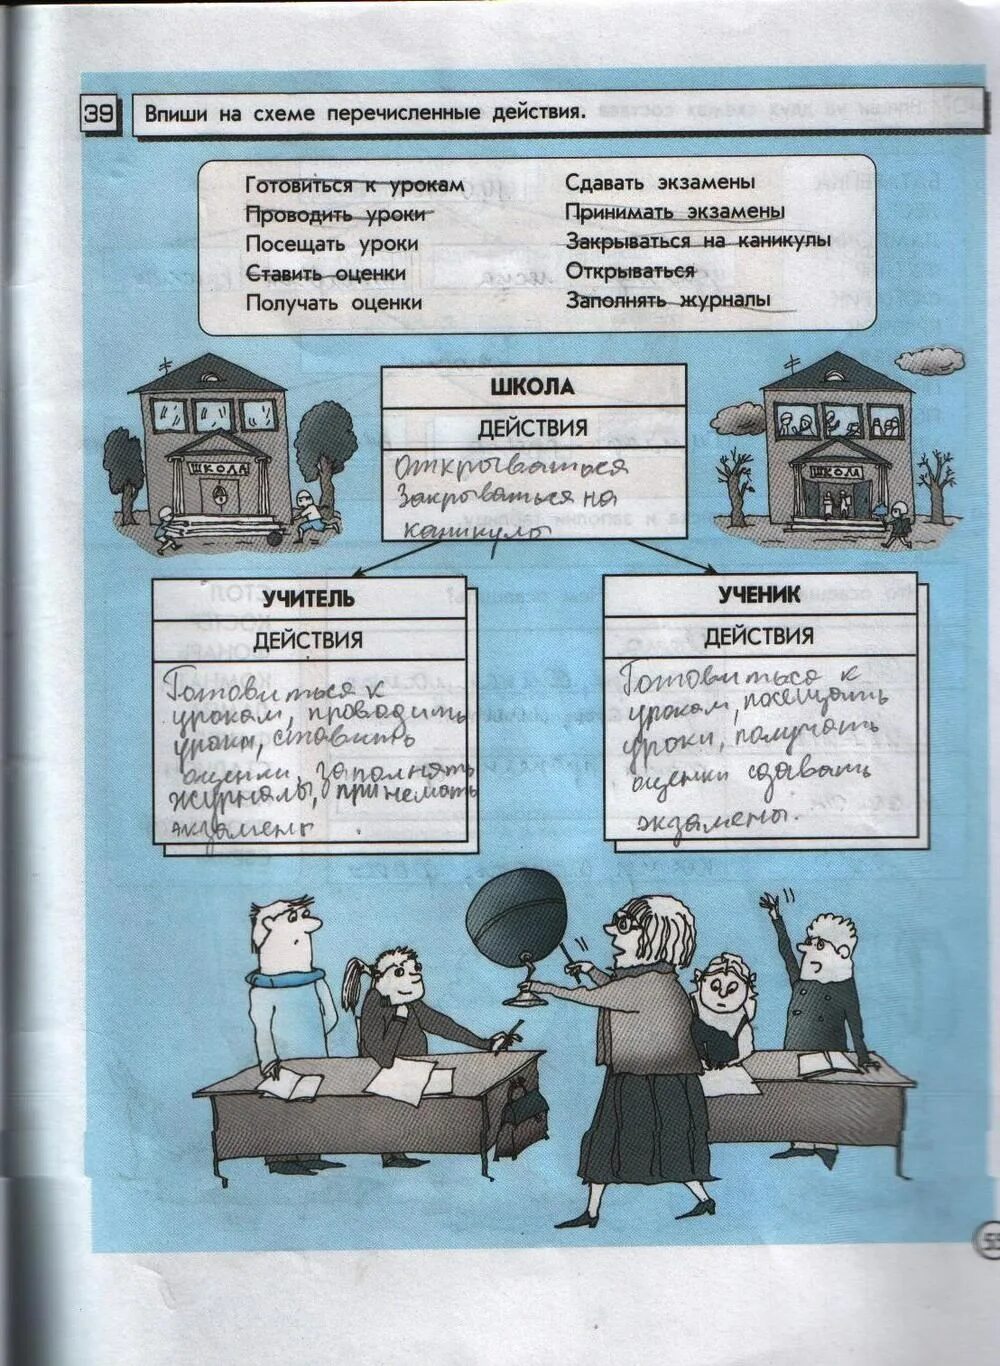 39 Впиши на схеме перечисленные действия.
Готовиться к урокам
Проводить уроки
Посещать уроки
Ставить оценки
Получать оценки
Сдавать экзамены
Принимать экзамены
Закрываться на каникулы
Открываться
Заполнять журналы
ШКОЛА
ШКОЛА
ШКОЛА
ДЕЙСТВИЯ
Открываться
Закрываться на
каникулы
УЧИТЕЛЬ
ДЕЙСТВИЯ
Готовиться к
урокам, проводить
уроки, ставить
оценки, заполнять
журналы, принемать
экзамены
УЧЕНИК
ДЕЙСТВИЯ
Готовиться к
урокам, посещать
уроки, получать
оценки сдавать
экзамены.
55